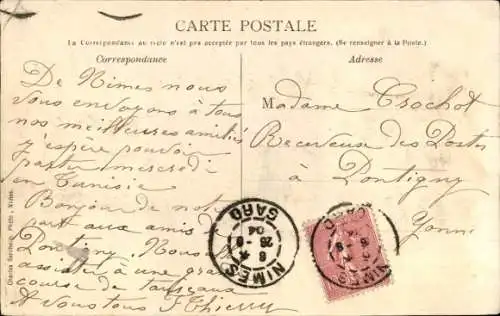 CARTE POSTALE
La Correspondance au recto n'est pas acceptée par tous les pays étrangers. (Se renseigner à la Poste.)
Correspondance
De Nimes nous
vous envoyons à tous
nos meilleures amitiés
j'espère pouvoir
partir mercredi
en Tunisie
Bonjour de notre
part aux amis de
Pontigny Nous
assister à une
course de taureaux
A vous tous J Thierry
Adresse
Madame Crochot
Receveuse des Postes
à Pontigny
Yonne
NIMES
GARD
6
26 - 6
04
NIMES
GARD
Photo - Nimes.